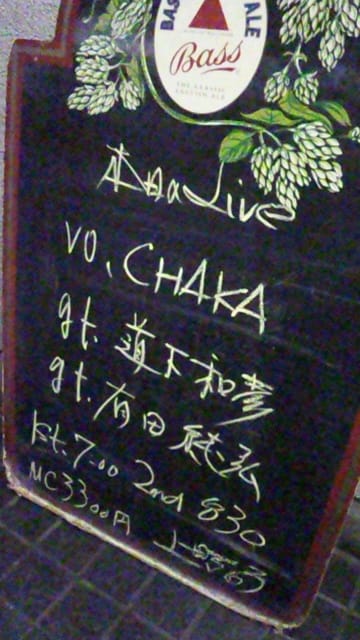 BASS
ALE
Bass
THE CLASSIC
ENGLISH ALE
本日のLive
VO. CHAKA
gt. 道下和彦
gt. 有田純弘
1st. 7:00 2nd 830
MC3300円